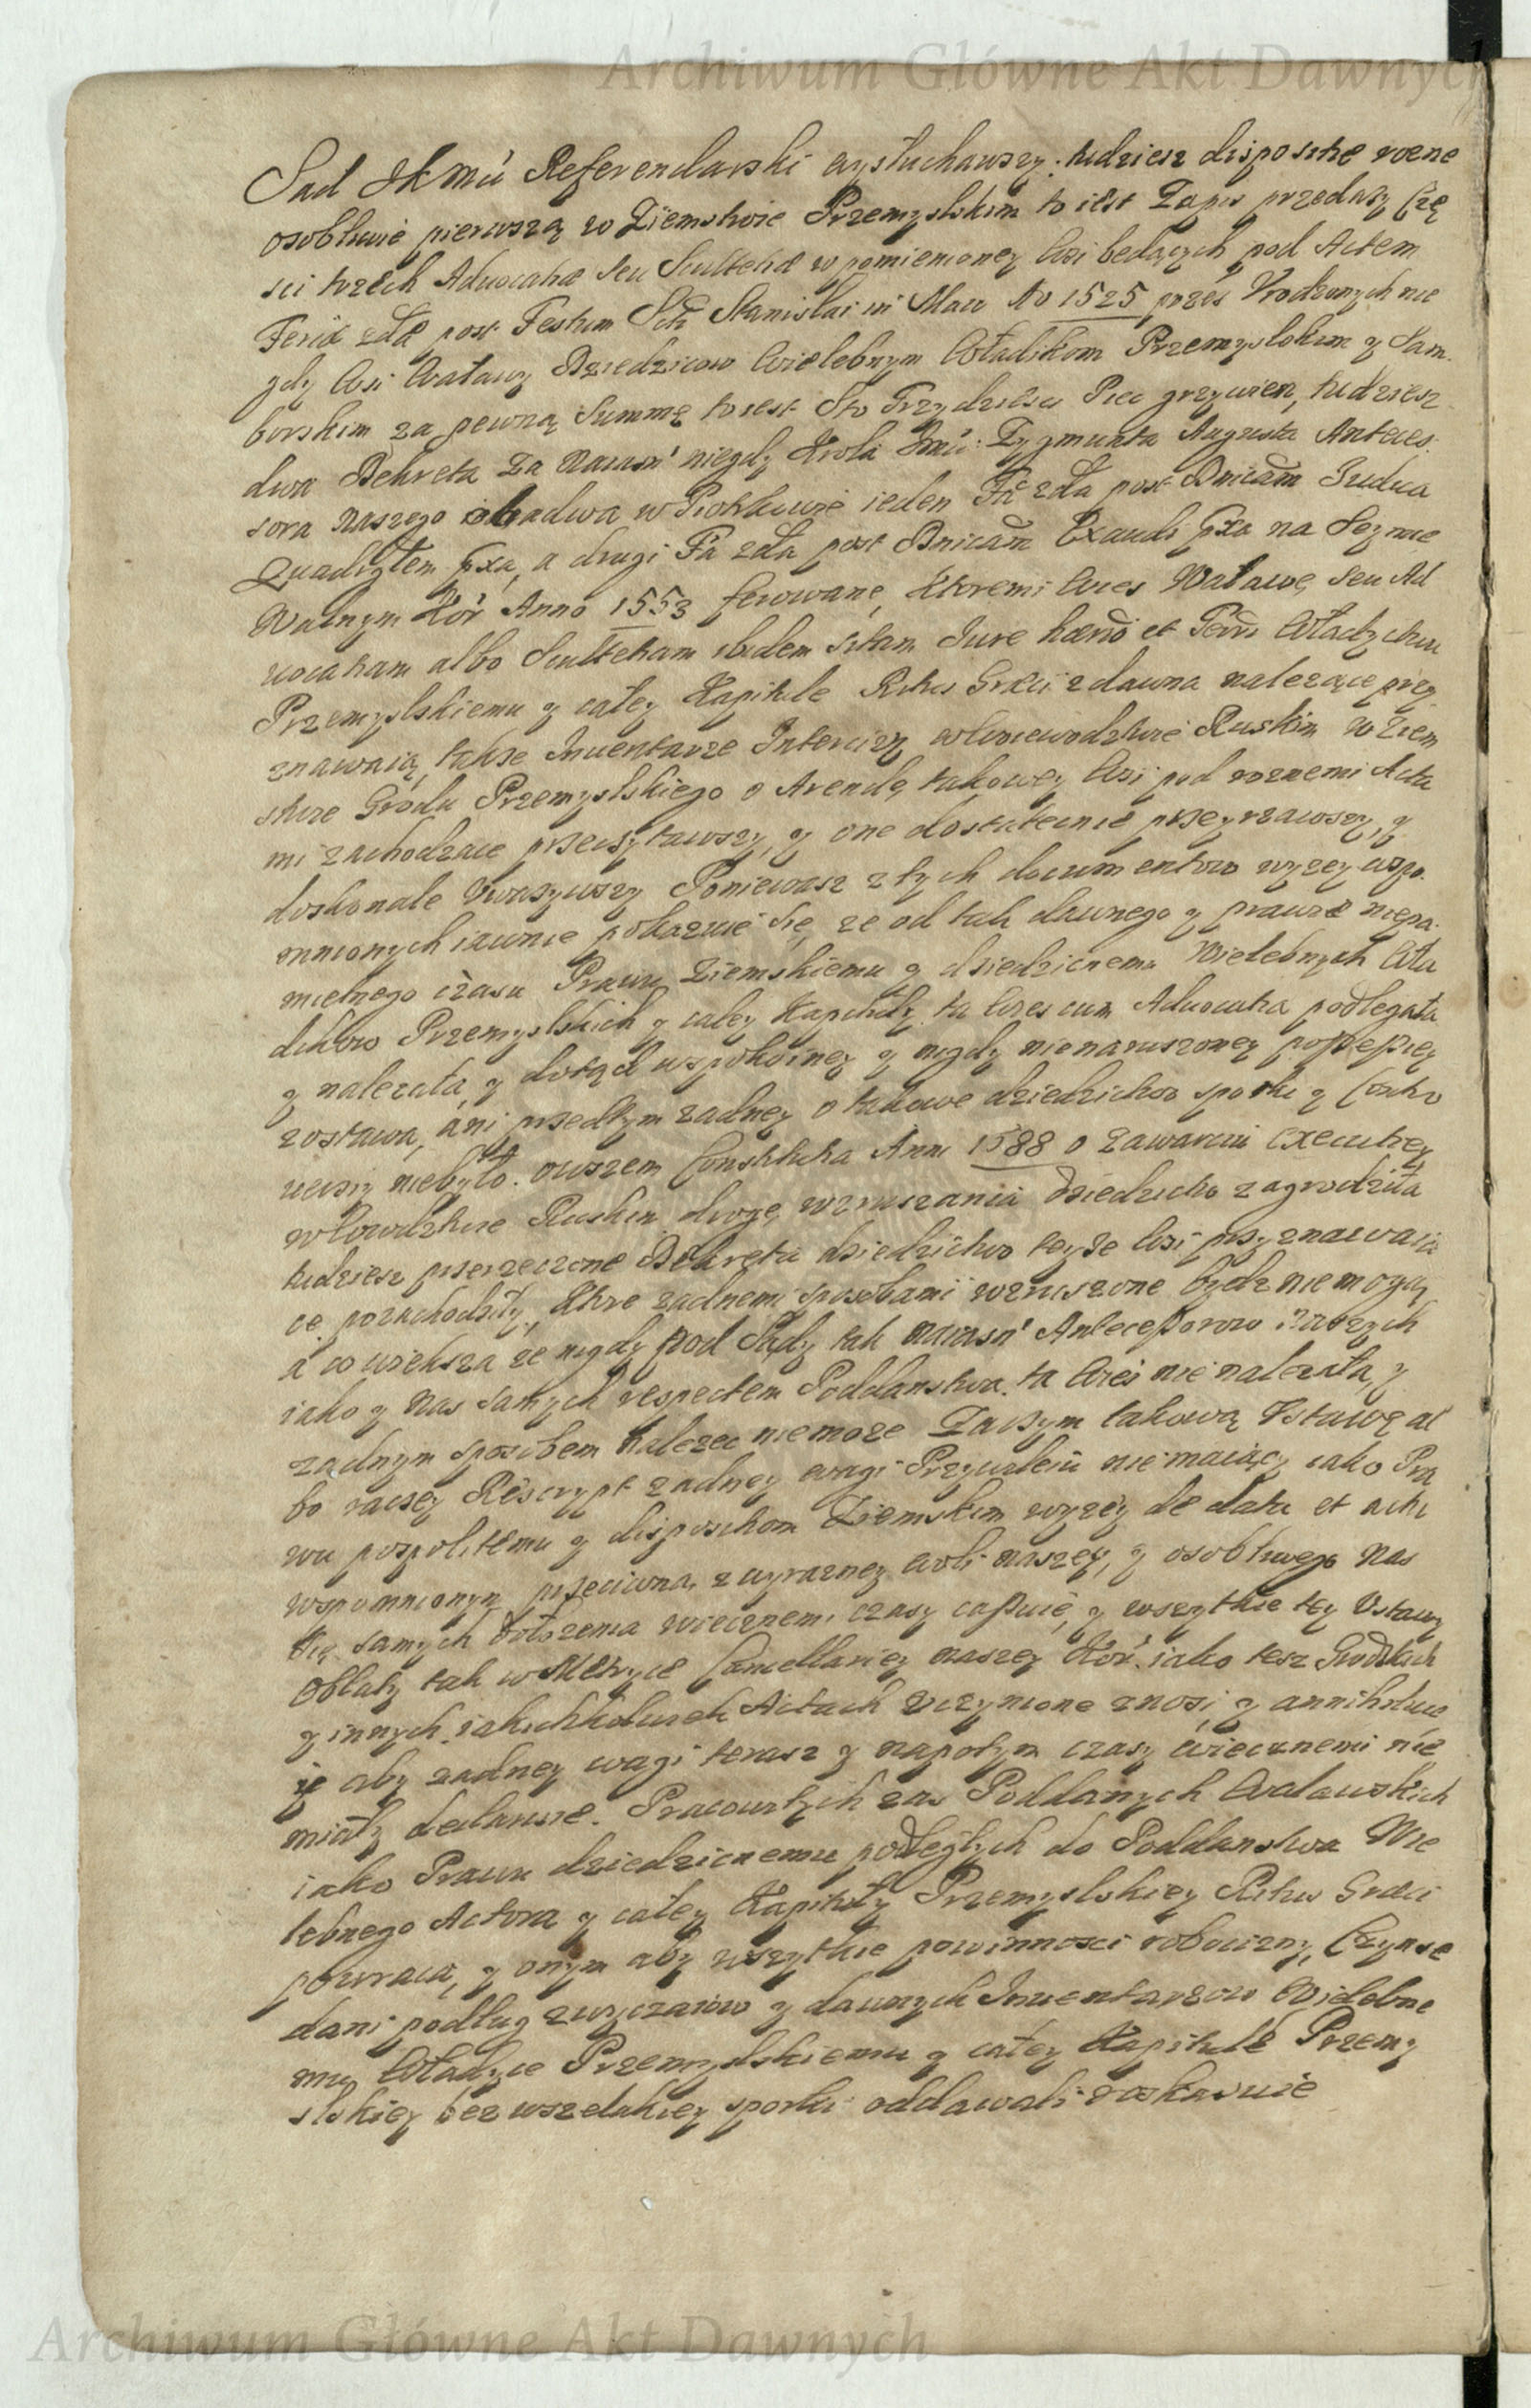 Archiwum Główne Akt Dawnych
Sad JKMci Referendarski wysłuchawszy, tudziesz dispositie rozne
osobliwie pierwszą w Ziemstwie Przemyslskim to iest Zapis przedaży Czę
sci trzech Advocatiæ seu Scultetiæ w pomienioney Wsi będących pod Actem
Feriâ 2dâ post Festum Scti Stanislai in Maio Ao 1525 przes Urodzonych nie
gdy Wsi Waławy Dziedzicow Wielebnym Władikom Przemyslskim y Sam-
borskim za pewną Summę to iest Sto Trzydziesci Piec grzywien, tudziesz
dwa Dekreta za Naiasń niegdy Krola Jmci Zygmunta Augusta Anteces-
sora Naszego obadwa w Piotrkowie ieden Fa 2da post Dnicam Iudica
Quadrgłem Gxa, a drugi Fa 2da post Dnicam Exaudi Gxa na Seymie
Walnym Kor Anno 1553 ferowane, Ktoremi Wies Waławę, seu Ad
vocatiam albo Scultetiam ibidem sitam Iure hærdo et Perdi Władyctwu
Przemyslskiemu y całey Kapitule Ritus Græci zdawna należące przy
znawaią, także Inwentarze Intercizy w Woiewodztwie Ruskim w Ziem
stwie Grodu Przemyslskiego o Arendę takowey Wsi pod roznemi Acta
mi zachodzące przeczytawszy, y one dostatecnie przeyrzawszy, y
doskonale uwazywszy Poniewasz z tych documentow wyzey wspo-
mnionych iawnie pokazuie się, ze od tak dawnego y prawie niepa-
mietnego czasu Prawu Ziemskiemu y dziedzicnemu Wielebnych Wła
dikow Przemyslskich y całey Kapituły ta Wies cum Advocatia podlegała
y nalezała, y dotąd w spokoiney y nigdy nienaruszoney possessiey
zostawa, ani przedtym zadney o takowe dziedzictwo sporki y Contro
versiy niebyło. owszem Constitutia Anni 1588 o zawarciu Executiey
w Wowdztwie Ruskim drogę wzruszania dziedzictw zagrodziła
tudziesz przerzeczone Dekreta dziedzictwo teyze Wsi przyznawaią
ce pozachodziły, Ktore zadnemi sposobami wzruszone bydz niemogą
a co większa ze nigdy pod Sądy tak Naiasń Antecessorow Naszych
iako y Nas samych respectem Poddanstwa ta Wies nie nalezała, y
zadnym sposobem nalezec niemoze Zaczym takową Ustawę al
bo raczey Rescrypt zadney wagi Przywileiu nie maiący iako Pra
wu pospolitemu y dispositiom Ziemskim wyzey de data et actu
wspomnionym przeciwna, z wyrazney woli naszey, y osobliwego Nas
się samych dołozenia wiecznemi czasy cassuie, y wszytkie tey Ustawy
Oblaty tak w Metryce Cancellariey naszey Kor. iako tesz Grodzkich
y innych iakichkolwiek Actach uczynione znosi, y annihiluie
ie aby zadney wagi terasz y napotym czasy wiecznemi nie
miały declaruie. Pracowitych zas Poddanych Waławskich
iako Prawu dziedzicnemu podległych do Poddanstwa Wie
lebnego Actora y całey Kapituły Przemyslskiey Ritus Græci
powraca, y onym aby wszytkie powinnosci robocizny, Czynsze
dani podług zwyczaiow y dawnych Inwentarzow Wielebne
mu Władyce Przemyslskiemu y całey Kapitule Przemy
slskiey bez wszelakiey sporki oddawali roskazuie
Archiwum Główne Akt Dawnych